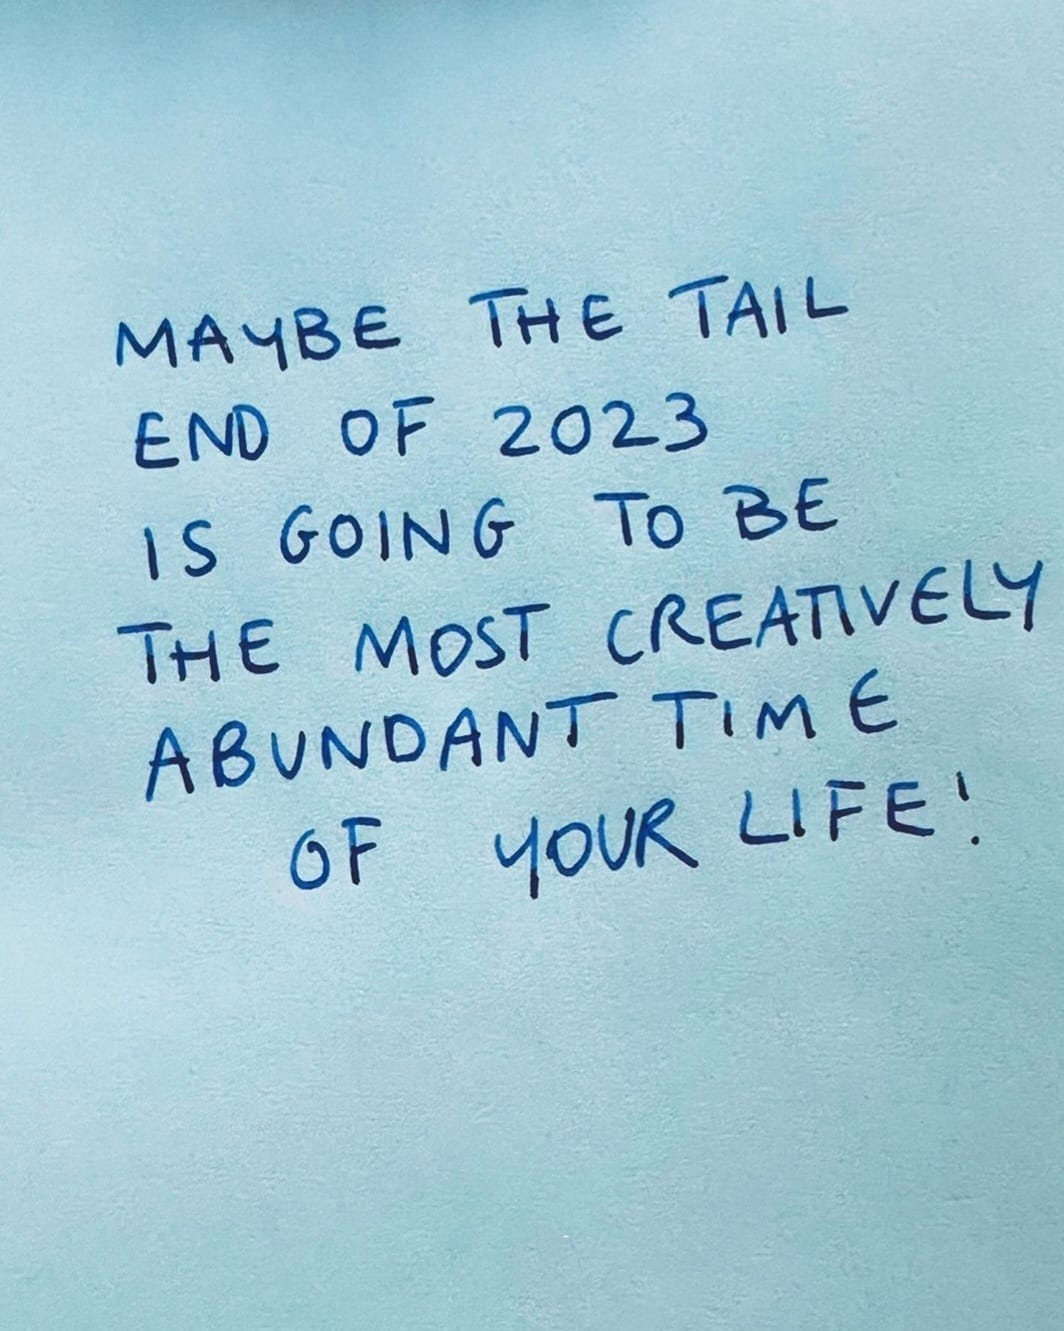 MAYBE THE TAIL
END OF 2023
IS GOING TO BE
THE MOST CREATIVELY
ABUNDANT TIME
OF YOUR LIFE!